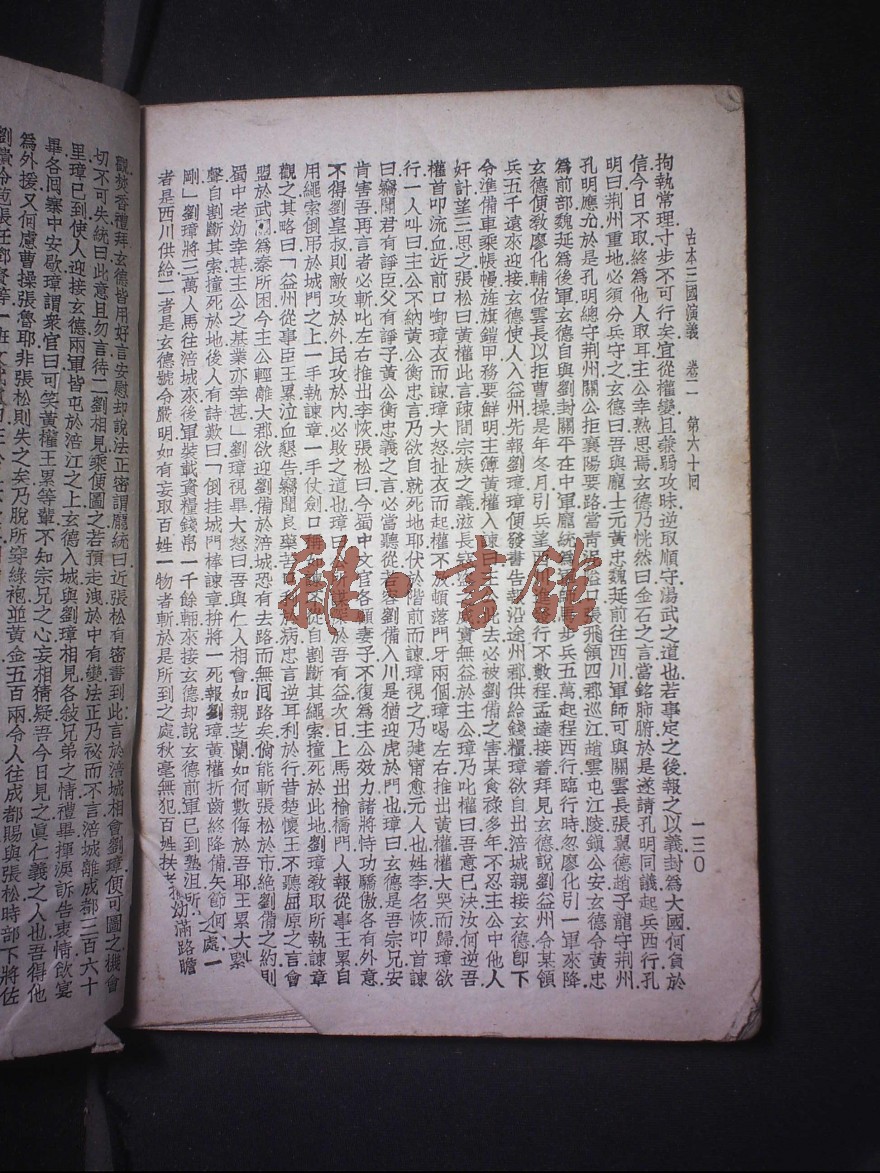 古本三國演義　卷二　第六十回　一三〇
拘執常理寸步不可行矣宜從權變且兼弱攻昧逆取順守湯武之道也若事定之後報之以義封為大國何負於
信今日不取終為他人取耳主公幸熟思焉玄德乃恍然曰金石之言當銘肺腑於是遂請孔明同議起兵西行孔
明曰荆州重地必須分兵守之玄德曰吾與龐士元黃忠魏延前往西川軍師可與關雲長張翼德趙子龍守荆州
孔明應允於是孔明總守荆州關公拒襄陽要路當青泥隘口張飛領四郡巡江趙雲屯江陵鎮公安玄德令黃忠
為前部魏延為後軍玄德自與劉封關平在中軍龐統為軍師馬步兵五萬起程西行臨行時忽廖化引一軍來降
玄德便敎廖化輔佑雲長以拒曹操是年冬月引兵望西川進行不數程孟達接着拜見玄德說劉益州令某領
兵五千遠來迎接玄德使人入益州先報劉璋璋便發書告報沿途州郡供給錢糧璋欲自出涪城親接玄德卽下
令準備車乘帳幔旌旗鎧甲務要鮮明主簿黃權入諫曰主公此去必被劉備之害某食祿多年不忍主公中他人
奸計望三思之張松曰黃權此言疎間宗族之義滋長寇盜之威實無益於主公璋乃叱權曰吾意已決汝何逆吾
權首叩流血近前口啣璋衣而諫璋大怒扯衣而起權不放頓落門牙兩個璋喝左右推出黃權權大哭而歸璋欲
行一人叫曰主公不納黃公衡忠言乃欲自就死地耶伏於階前而諫璋視之乃建甯愈元人也姓李名恢叩首諫
曰竊聞君有諍臣父有諍子黃公衡忠義之言必當聽從若容劉備入川是猶迎虎於門也璋曰玄德是吾宗兄安
肯害吾再言者必斬叱左右推出李恢張松曰今蜀中文官各顧妻子不復為主公效力諸將恃功驕傲各有外意
不得劉皇叔則敵攻於外民攻於內必敗之道也璋曰公所謀深於吾有益次日上馬出榆橋門人報從事王累自
用繩索倒吊於城門之上一手執諫章一手仗劍口稱如諫不從自割斷其繩索撞死於此地劉璋敎取所執諫章
觀之其略曰「益州從事臣王累泣血懇告竊聞良藥苦口利於病忠言逆耳利於行昔楚懷王不聽屈原之言會
盟於武關為秦所困今主公輕離大郡欲迎劉備於涪城恐有去路而無囘路矣倘能斬張松於市絕劉備之約則
蜀中老幼幸甚主公之基業亦幸甚」劉璋視畢大怒曰吾與仁人相會如親芝蘭如何數侮於吾耶王累大叫一
聲自割斷其索撞死於地後人有詩歎曰「倒挂城門棒諫章拚將一死報劉璋黃權折齒終降備矢節何
剛」劉璋將三萬人馬往涪城來後軍裝載資糧錢帛一千餘輛來接玄德却說玄德前軍已到墊沮所之處一
者是西川供給二者是玄德號令嚴明如有妄取百姓一物者斬於是所到之處秋毫無犯百姓扶老攜幼滿路瞻
觀焚香禮拜玄德皆用好言安慰却說法正密謂龐統曰近張松有密書到此言於涪城相會劉璋便可圖之機會
切不可失統曰此意且勿言待二劉相見乘便圖之若預走洩於中有變法正乃祕而不言涪城離成都三百六十
里璋已到使人迎接玄德兩軍皆屯於涪江之上玄德入城與劉璋相見各敍兄弟之情禮畢揮淚訴告衷情飲宴
畢各囘寨中安歇璋謂衆官曰可笑黃權王累等輩不知宗兄之心妄相猜疑吾今日見之眞仁義之人也吾得他
為外援又何慮曹操張魯耶非張松則失之矣乃脫所穿綠袍並黃金五百兩令人往成都賜與張松時部下將佐
劉璝冷苞張任鄧賢等一班文武
雜·書館